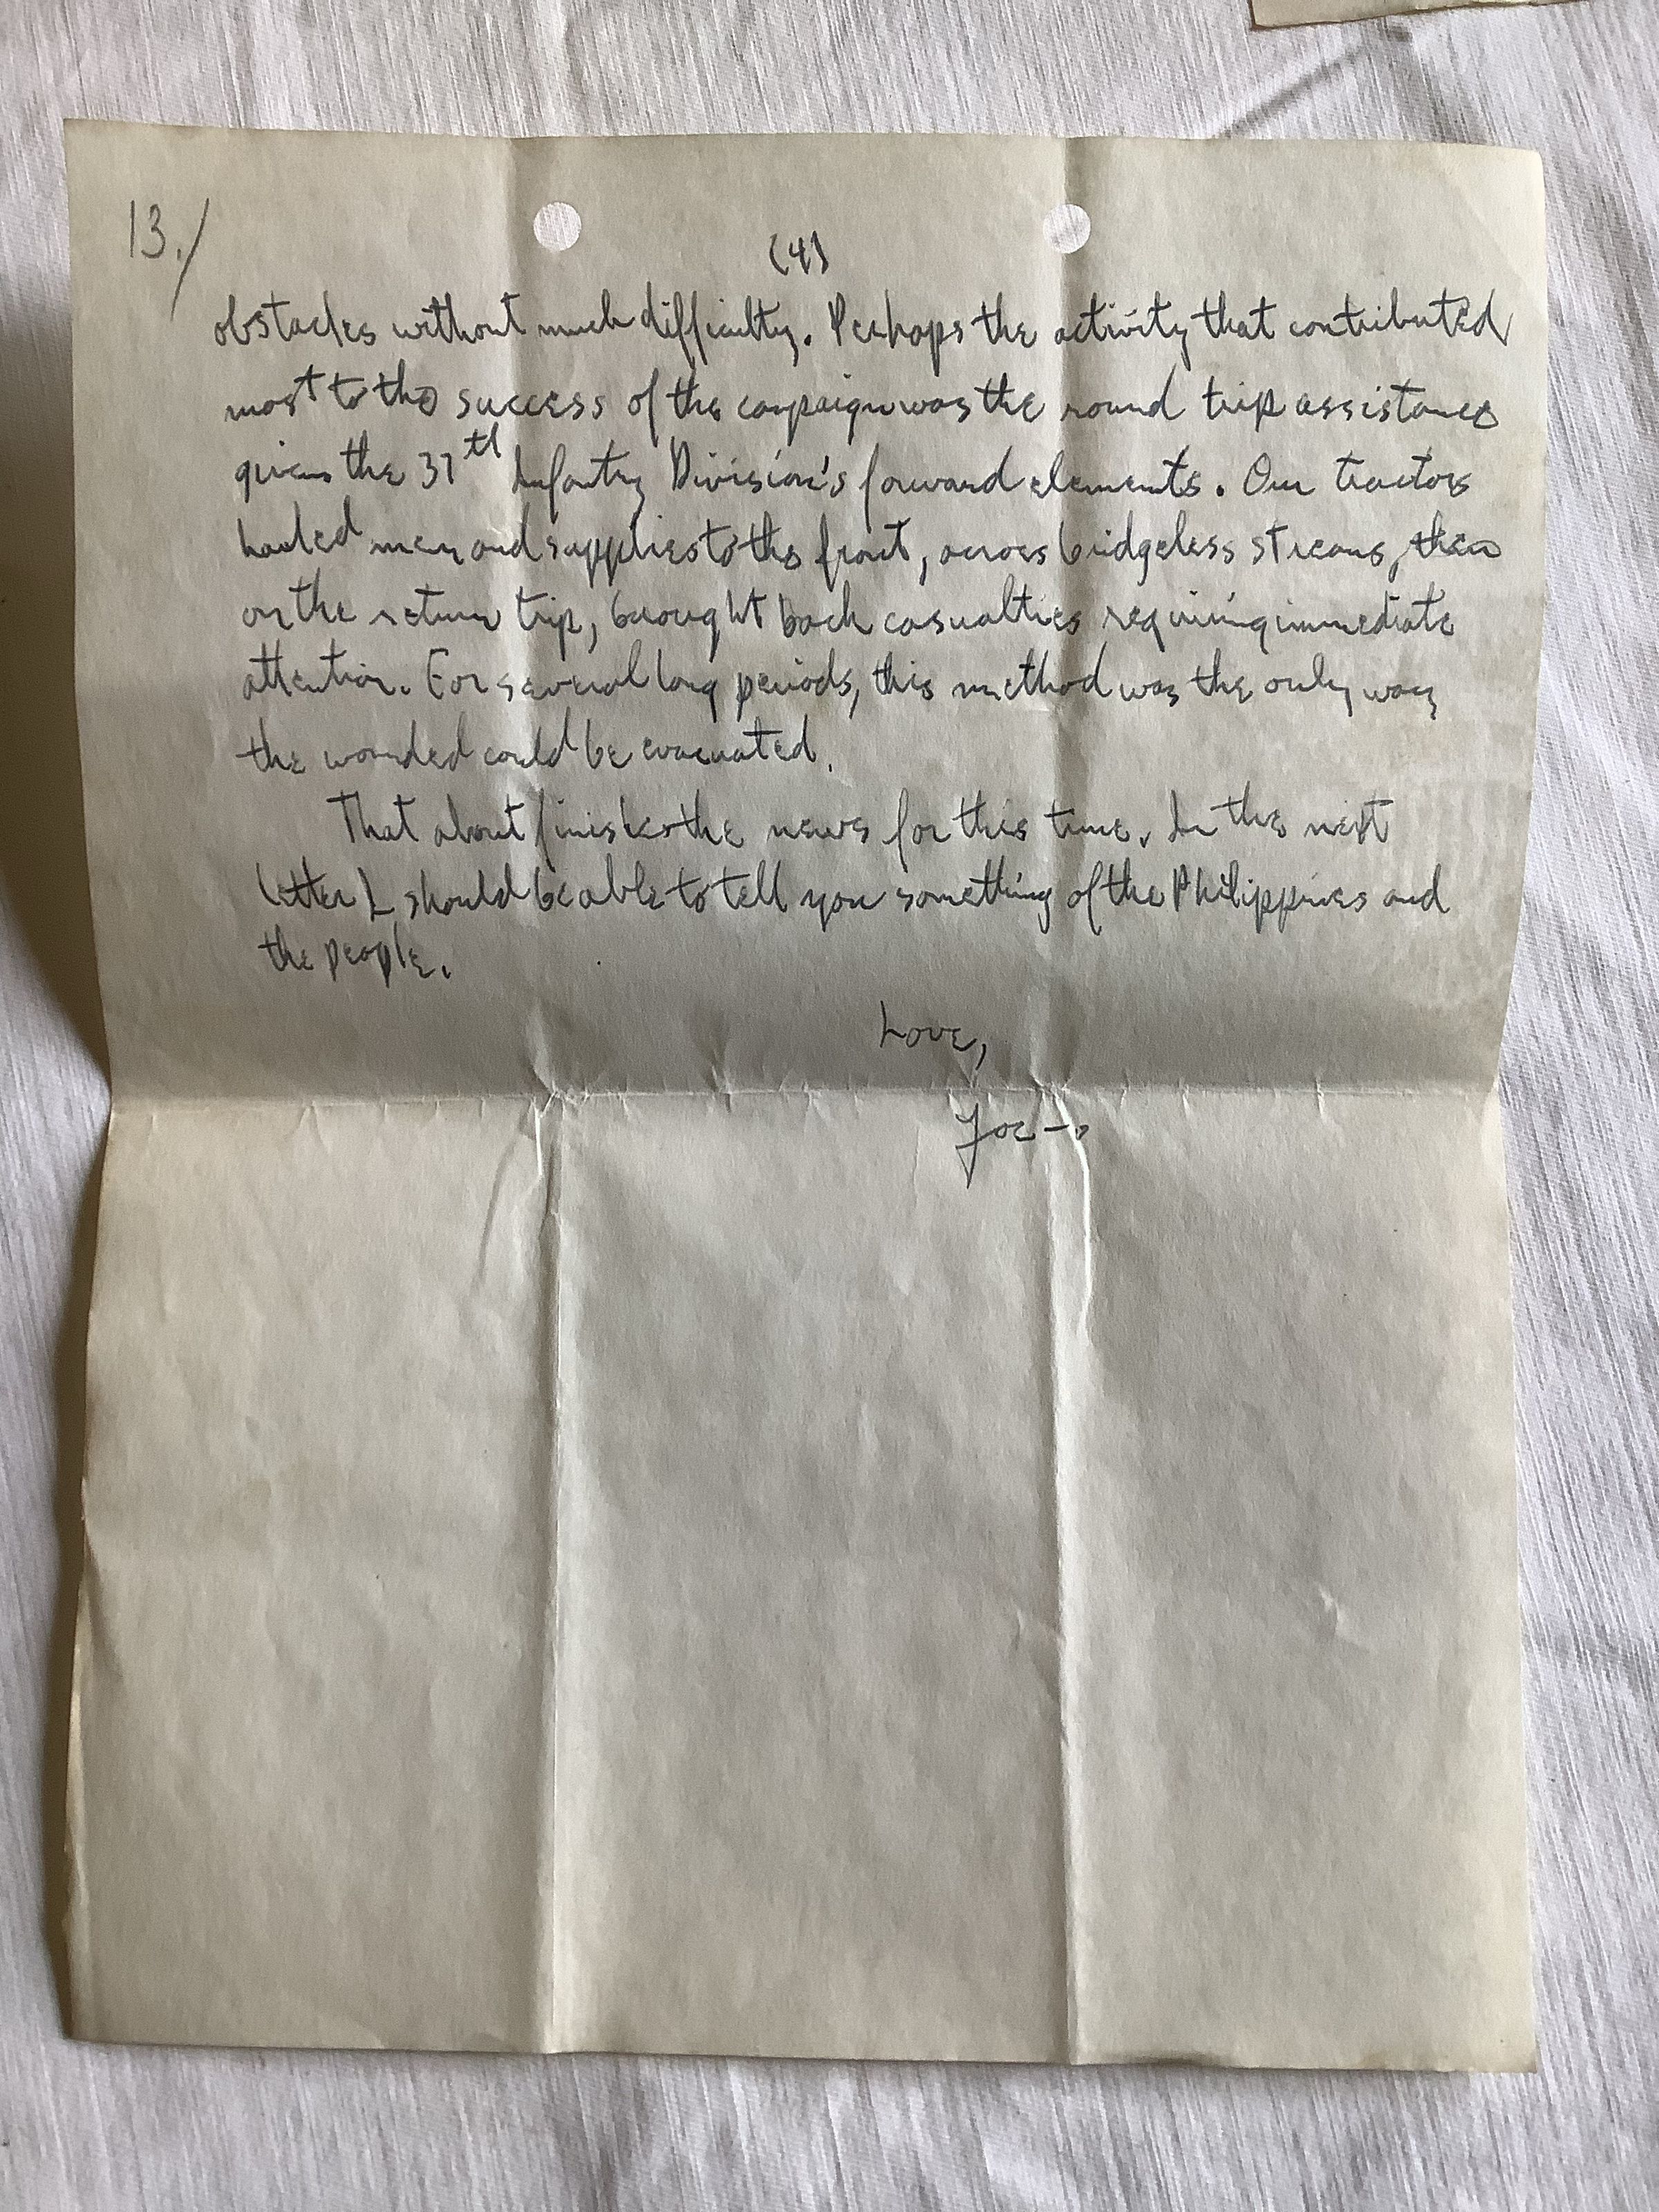 13./
(4)
obstacles without much difficulty. Perhaps the activity that contributed
most to the success of the campaign was the round trip assistance
given the 37th Infantry Division's forward elements. Our tractors
hauled men and supplies to the front, across bridgeless streams, then
on the return trip, brought back casualties requiring immediate
attention. For several long periods, this method was the only way
the wounded could be evacuated.
That about finishes the news for this time. In the next
letter I should be able to tell you something of the Philippines and
the people.
Love,
Joe